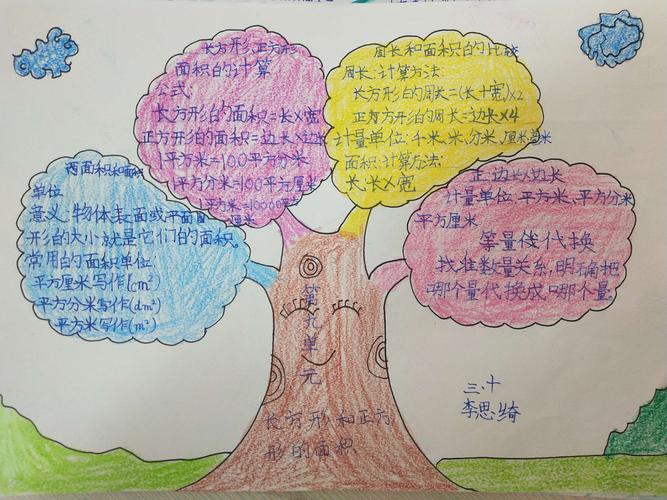 长方形正方形
面积的计算
公式:
长方形的面积=长×宽
正方形的面积=边长×边长
1平方米=100平方分米
1平方分米=100平方厘米
1平方米=10000平方
厘米
周长和面积的比较
周长:计算方法:
长方形的周长=(长+宽)×2
正方形的周长=边长×4
计量单位:千米、米、分米、厘米、毫米
面积:计算方法:
长:长×宽
面积和面积
单位
意义:物体表面或平面图
形的大小就是它们的面积。
常用的面积单位:
平方厘米写作(cm²)
平方分米写作(dm²)
平方米写作(m²)
正:边长×边长
计量单位:平方米、平方分米、
平方厘米
等量代换
找准数量关系,明确把
哪个量代换成哪个量。
第九单元
长方形和正方
形的面积
三、十
李思绮